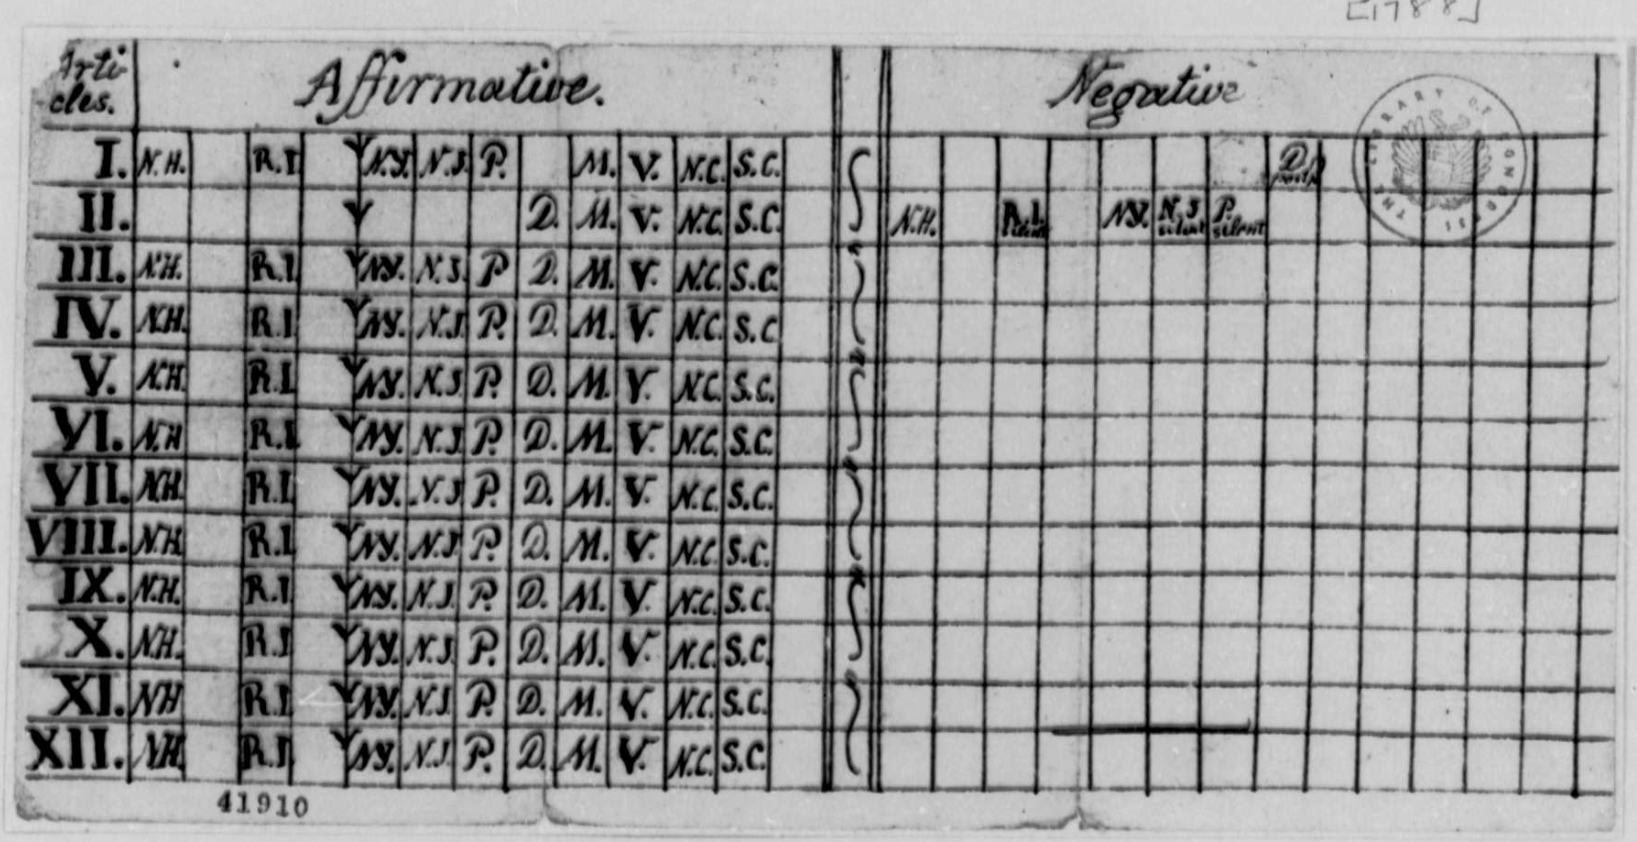 [1788]
Arti-
cles. Affirmative. Negative
I. N.H. R.I Y N.Y. N.J. P. M. V. N.C. S.C. D.
II. Y D. M. V. N.C. S.C. N.H. R.I. N.Y. N.J. silent P. silent
III. N.H. R.I Y N.Y. N.J. P D. M. V. N.C. S.C.
IV. N.H. R.I Y N.Y. N.J. P. D. M. V. N.C. S.C
V. N.H. R.I. Y N.Y. N.J P. D. M. V. N.C. S.C.
VI. N.H R.I Y N.Y. N.J. P. D. M. V. N.C. S.C.
VII. N.H. R.I. Y N.Y. N.J P. D. M. V. N.C. S.C.
VIII. N.H R.I Y N.Y. N.J. P. D. M. V. N.C. S.C.
IX. N.H. R.I Y N.Y. N.J. P. D. M. V. N.C. S.C.
X. N.H. R.I Y N.Y. N.J. P. D. M. V. N.C. S.C.
XI. NH R.I Y N.Y. N.J P. D. M. V. N.C. S.C.
XII. N.H. R.I Y N.Y. N.J. P. D. M. V. N.C. S.C.
41910
THE LIBRARY OF CONGRESS